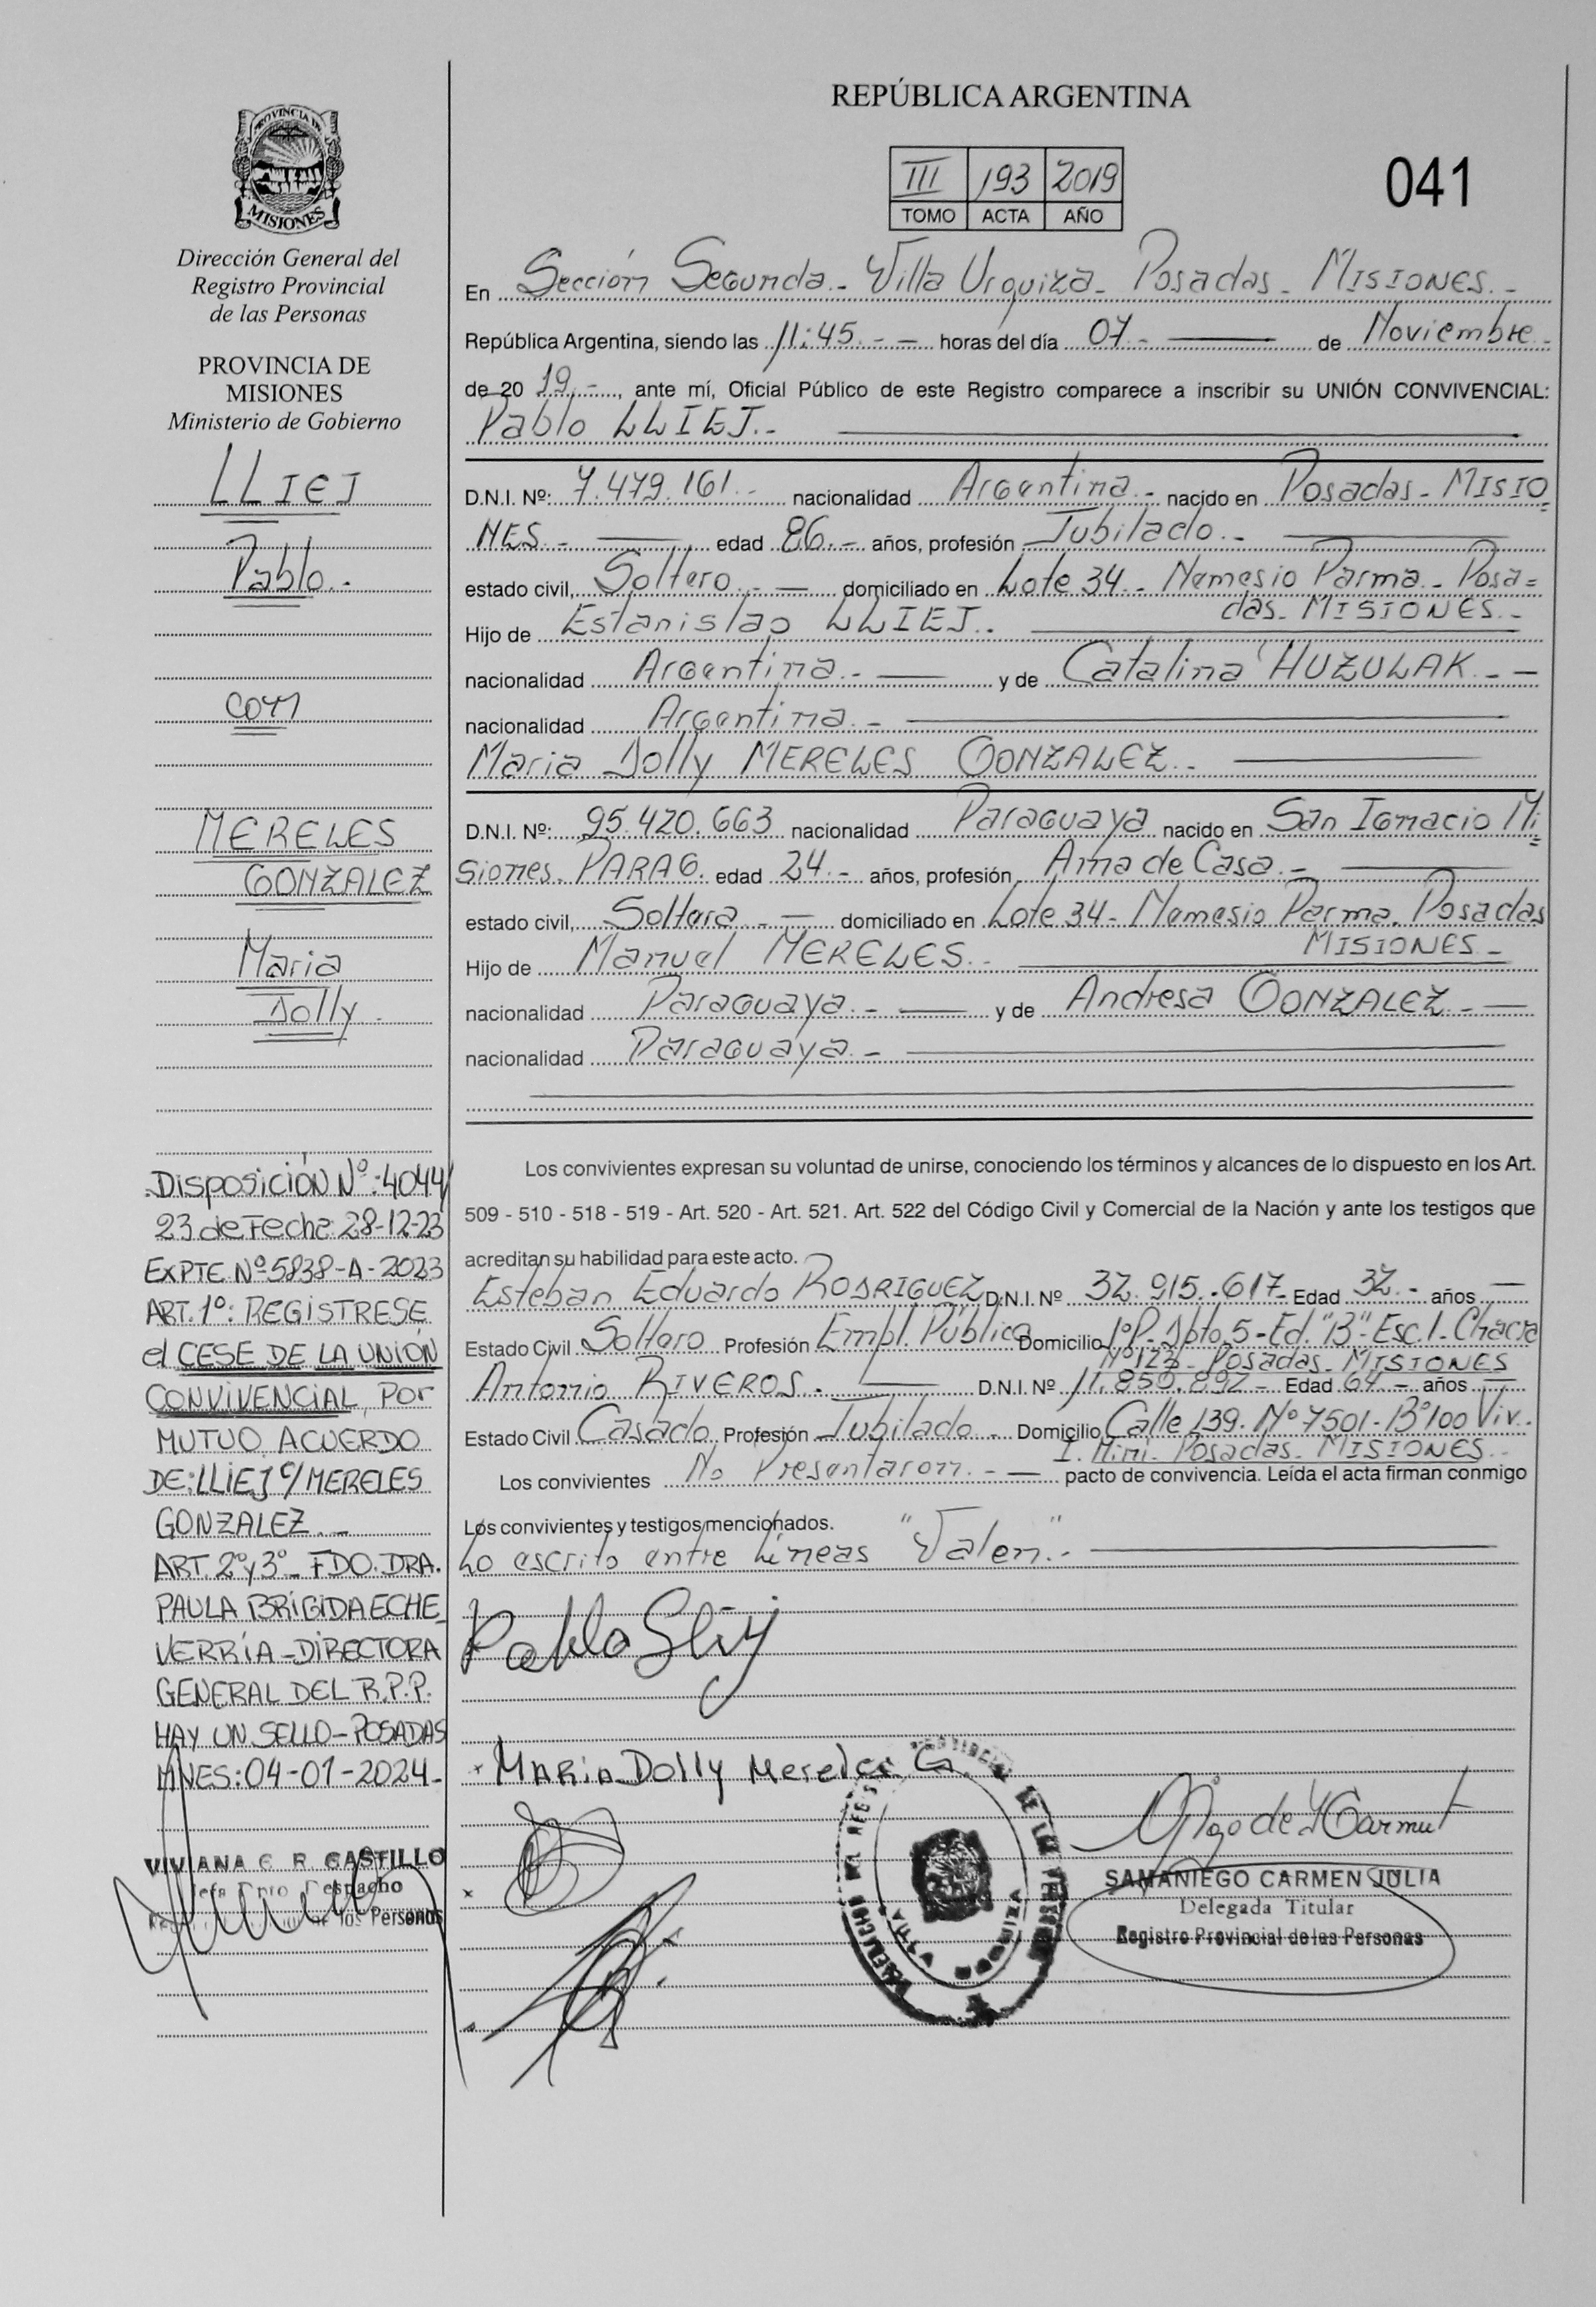 REPÚBLICA ARGENTINA
III 193 2019
TOMO ACTA AÑO
041
PROVINCIA DE
MISIONES
Dirección General del
Registro Provincial
de las Personas
PROVINCIA DE
MISIONES
Ministerio de Gobierno
LLIEJ
Pablo.-
con
MERELES
GONZALEZ
Maria
Dolly.
DISPOSICIÓN Nº:4044/
23 de Fecha: 28-12-23
EXPTE Nº 5838-A-2023
ART.1º: REGISTRESE
el CESE DE LA UNIÓN
CONVIVENCIAL, POR
MUTUO ACUERDO
DE: LLIEJ C/ MERELES
GONZALEZ.-
ART. 2º y 3º - FDO. DRA.
PAULA BRÍGIDA ECHE
VERRÍA - DIRECTORA
GENERAL DEL R.P.P.
HAY UN SELLO - POSADAS
MNES: 04-01-2024-
VIVIANA C. R. CASTILLO
Jefa Dpto Despacho
de las Personas
En Sección Segunda - Villa Urquiza - Posadas - MISIONES.-
República Argentina, siendo las 11:45.- - horas del día 07.- de Noviembre.-
de 20 19.-, ante mí, Oficial Público de este Registro comparece a inscribir su UNIÓN CONVIVENCIAL:
Pablo LLIEJ.-
D.N.I. Nº: 7.479.161.- nacionalidad Argentina.- nacido en Posadas - MISIO=
NES.- edad 86.- años, profesión Jubilado.-
estado civil, Soltero.- - domiciliado en Lote 34 - Nemesio Parma - Posa=
das - MISIONES.-
Hijo de Estanislao LLIEJ.-
nacionalidad Argentina.- y de Catalina HUZULAK.- -
nacionalidad Argentina.-
Maria Dolly MERELES GONZALEZ.-
D.N.I. Nº: 95.420.663 nacionalidad Paraguaya nacido en San Ignacio Mi=
siones. PARAG. edad 24.- años, profesión Ama de Casa.-
estado civil, Soltera.- - domiciliado en Lote 34 - Nemesio Parma. Posadas
MISIONES -
Hijo de Manuel MERELES.-
nacionalidad Paraguaya.- y de Andresa GONZALEZ.-
nacionalidad Paraguaya.-
Los convivientes expresan su voluntad de unirse, conociendo los términos y alcances de lo dispuesto en los Art.
509 - 510 - 518 - 519 - Art. 520 - Art. 521. Art. 522 del Código Civil y Comercial de la Nación y ante los testigos que
acreditan su habilidad para este acto.
Esteban Eduardo RODRIGUEZ D.N.I. Nº 32.915.617- Edad 32.- años -
Estado Civil Soltero Profesión Empl. Pública Domicilio 1ºP- Dpto.5- Ed."B"- Esc.1- Chacra
Nº 123 - Posadas - MISIONES
Antonio RIVEROS.- D.N.I. Nº 11.850.892 - Edad 64.- años -
Estado Civil Casado Profesión Jubilado.- Domicilio Calle 139. Nº 7501-Bº100 Viv.
I. Mini- Posadas - MISIONES.-
Los convivientes No Presentaron.- - pacto de convivencia. Leída el acta firman conmigo
Los convivientes y testigos mencionados.
Lo escrito entre Líneas "Valen".-
Pablo Sliij
MARia Dolly Mereles G.
SAMANIEGO CARMEN JULIA
Delegada Titular
Registro Provincial de las Personas